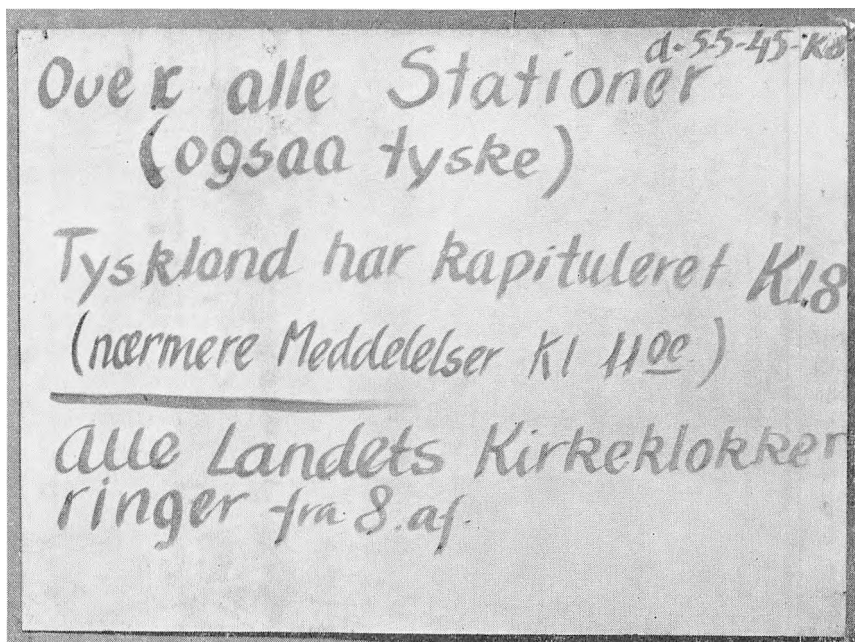 d. 5-5-45-Kl 8
Over alle Stationer
(ogsaa tyske)
Tyskland har kapituleret Kl.8
(nærmere Meddelelser Kl 11 00)
Alle Landets Kirkeklokker
ringer fra 8. af.